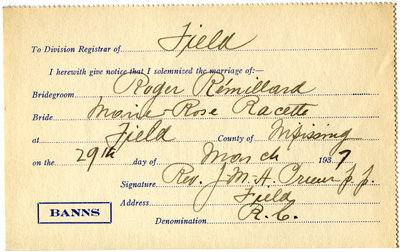 To Division Registrar of Field
I herewith give notice that I solemnized the marriage of:—
Bridegroom Roger Rémillard
Bride Marie-Rose Racette
at Field County of Nipissing
on the 29th day of March 1937
Signature Rev. J. M. A. Prieur p.p.
Address Field
BANNS
Denomination R.C.